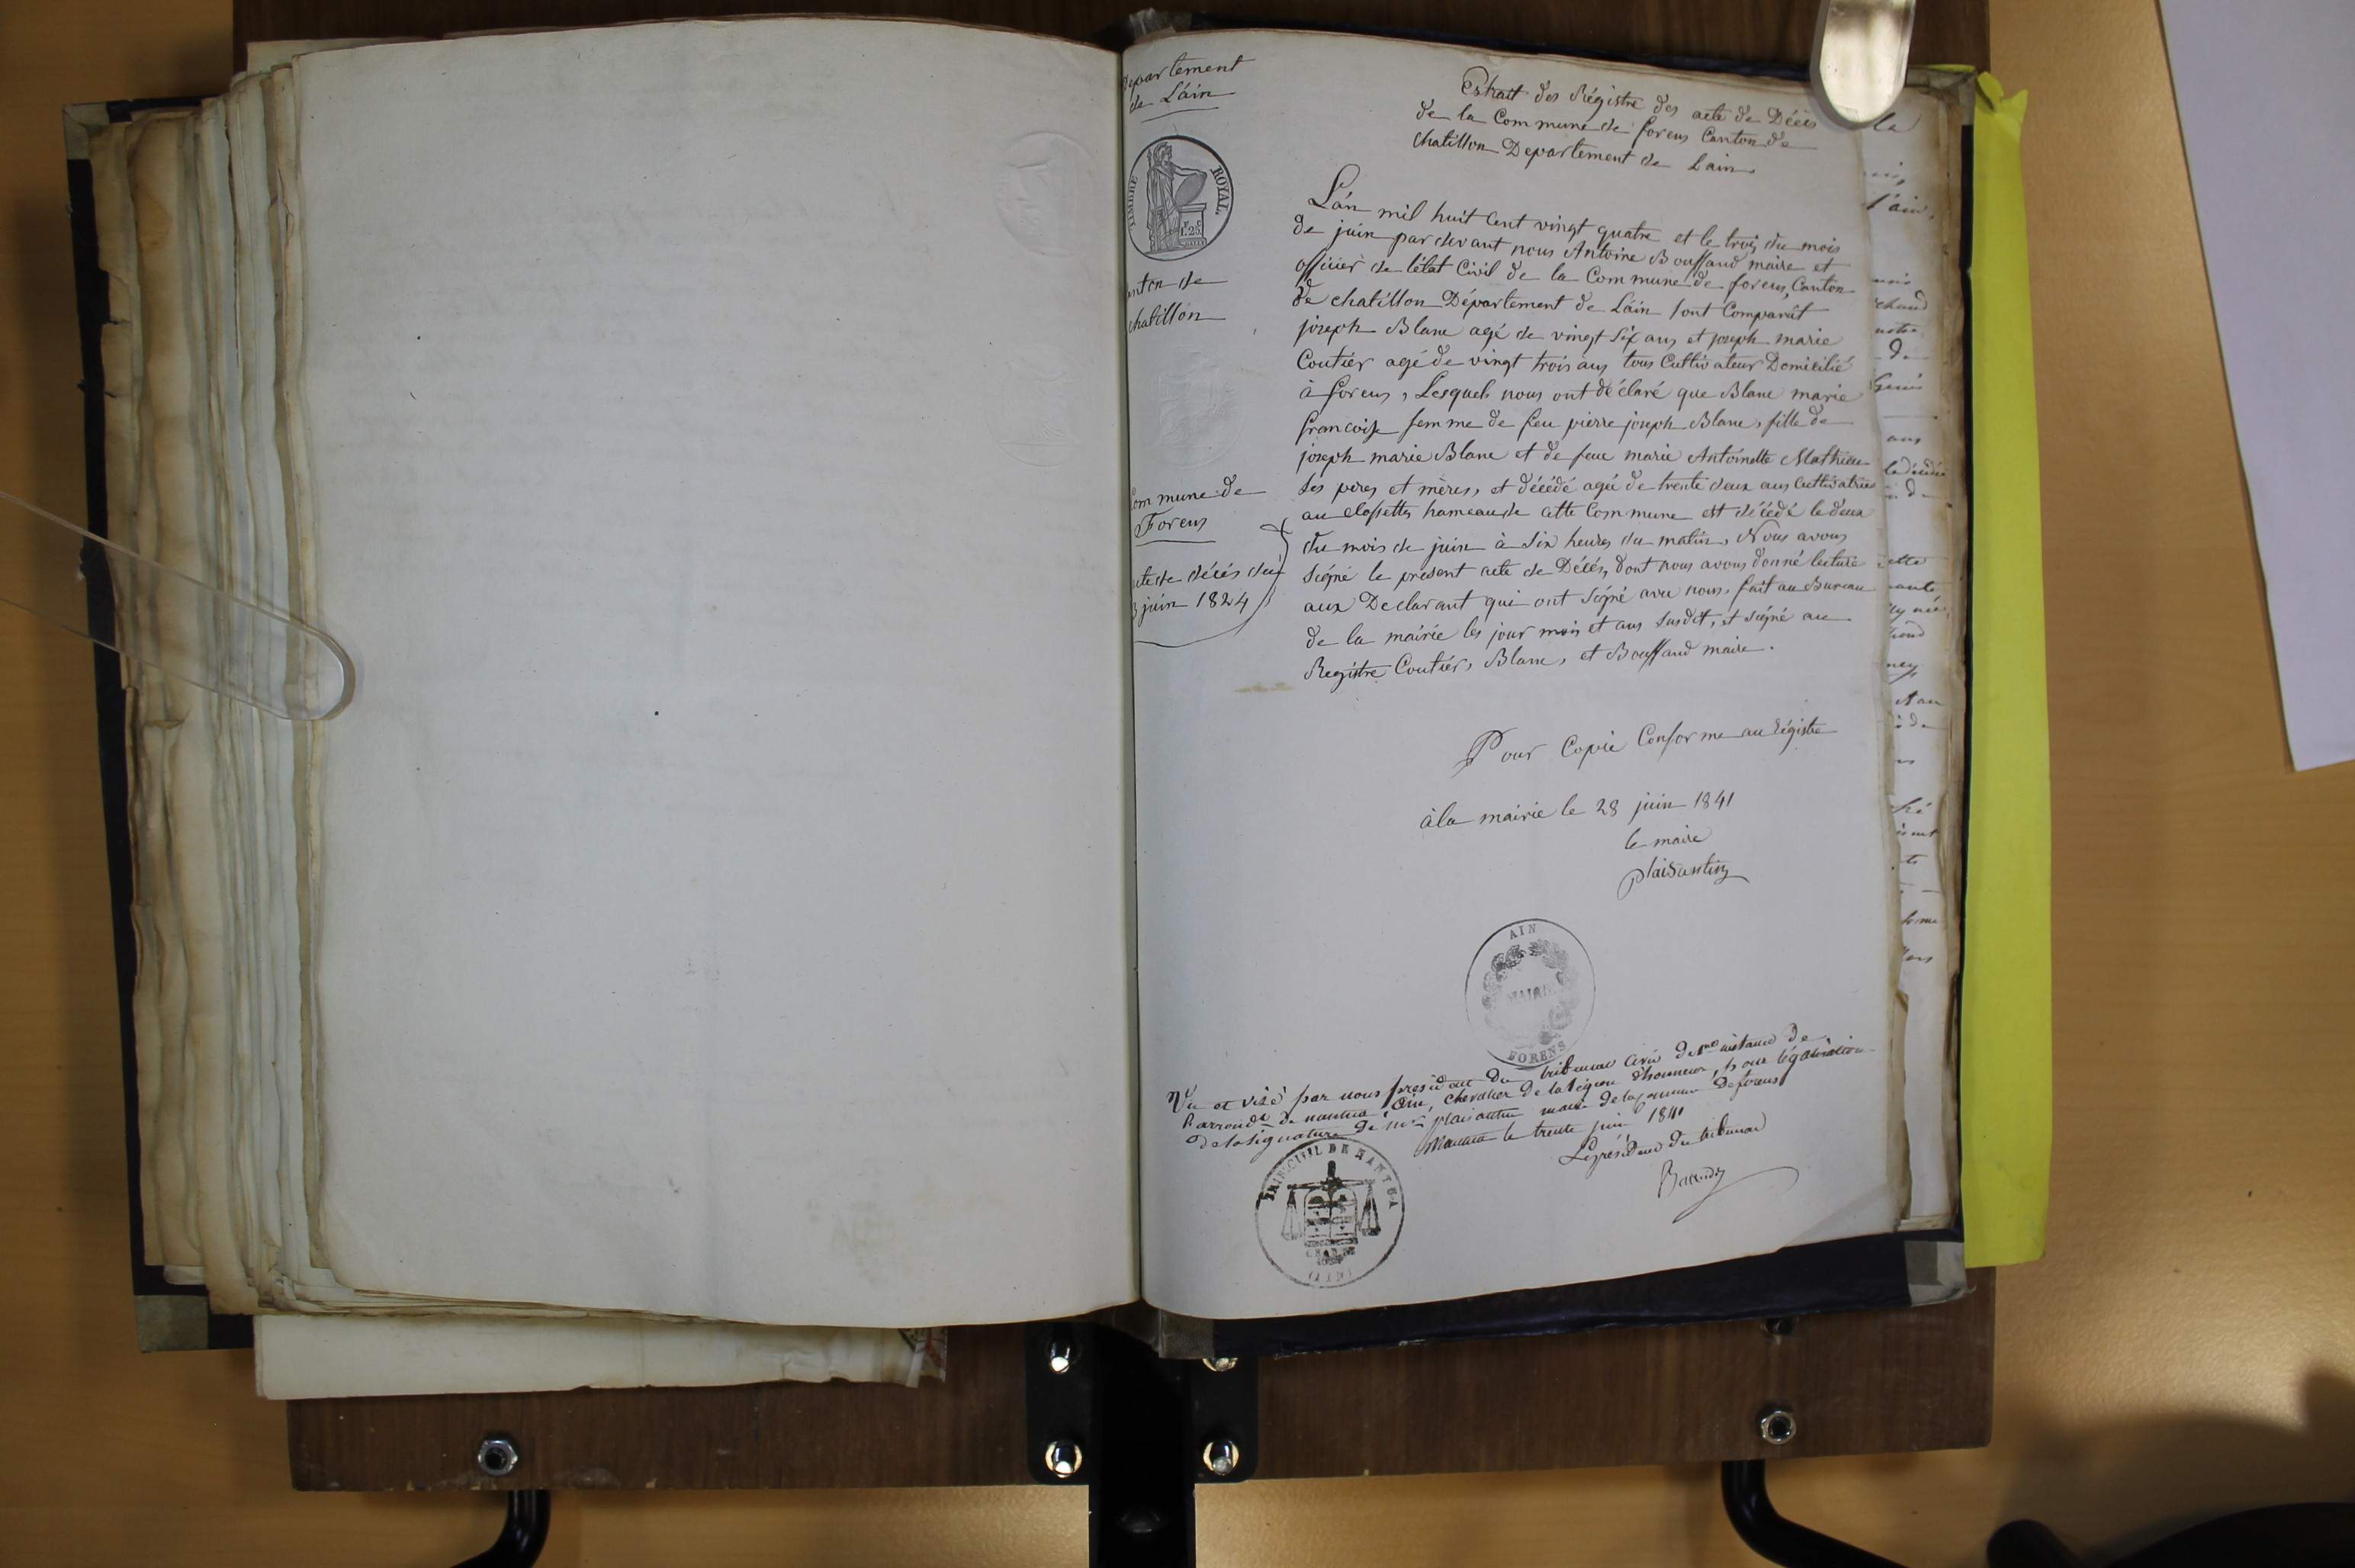 Departement
de L'ain
TIMBRE ROYAL
1.25
anton de
chatillon
Commune de
Forens
acte de décés du
3 juin 1824
Extrait des Régistre des acte de Décés
de la Commune de forens Canton de
chatillon Departement de Lain
L'an mil huit Cent vingt quatre et le trois du mois
de juin par devant nous Antoine Bouffaud maire et
officier de l'état Civil de la Commune de forens, Canton
de chatillon Département de L'ain sont Comparût
joseph Blanc agé de vingt Six ans et joseph marie
Coutier agé de vingt trois ans tous Cultivateur Domicilié
à forens, Lesquels nous ont déclaré que Blanc marie
francoise femme de feu pierre joseph Blanc, fille de
joseph marie Blanc et de feue marie Antoinette Mathieu
Ses peres et mères, et décédé agée de trente deux ans Cultivatrice
au hameau de cette Commune est décédé le deux
du mois de juin à Six heures du matin, Nous avons
Signé le present acte de Décés, dont nous avons donné lecture
aux Declarant qui ont Signé avec nous, fait au Bureau
de la mairie les jour mois et ans Susdit, et signé au
Registre Coutier, Blanc, et Bouffaud maire.
Pour Copie Conforme au régistre
à la mairie le 28 juin 1841
le maire
plaisantin
AIN
MAIRIE
FORENS
Vu et visé par nous president du tribunal Civil de 1re instance de
l'arrondt de nantua, ain, chevalier de la légion d'honneur, pour légalisation
de la signature de Mr plaisantin maire de la commune de forens
Nantua le trente juin 1841
Le président du tribunal
TRIB CIVIL DE NANTUA
(AIN)